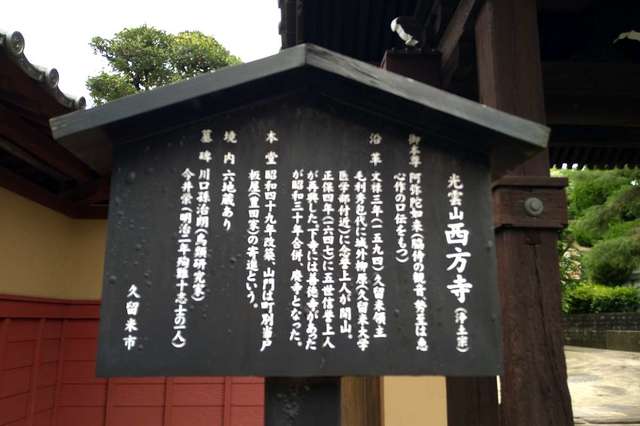 光雲山 西方寺 (浄土宗)
御本尊 阿弥陀如来(脇侍の観音、勢至は恵
心作の口伝をもつ)
沿革 文禄三年(一五九四)久留米領主
毛利秀包代に城外柳原(久留米大学
医学部付近)に念誉上人が開山。
正保四年(一六四七)に五世信誉上人
が再興した。下寺には善徳寺があった
が昭和三十年合併、廃寺となった。
本堂 昭和四十九年改築、山門は町別当戸
板屋(豊田家)の寄進という。
境内 六地蔵あり
墓碑 川口孫治朗(鳥類研究家)
今井栄(明治二年殉難十志士の一人)
久留米市